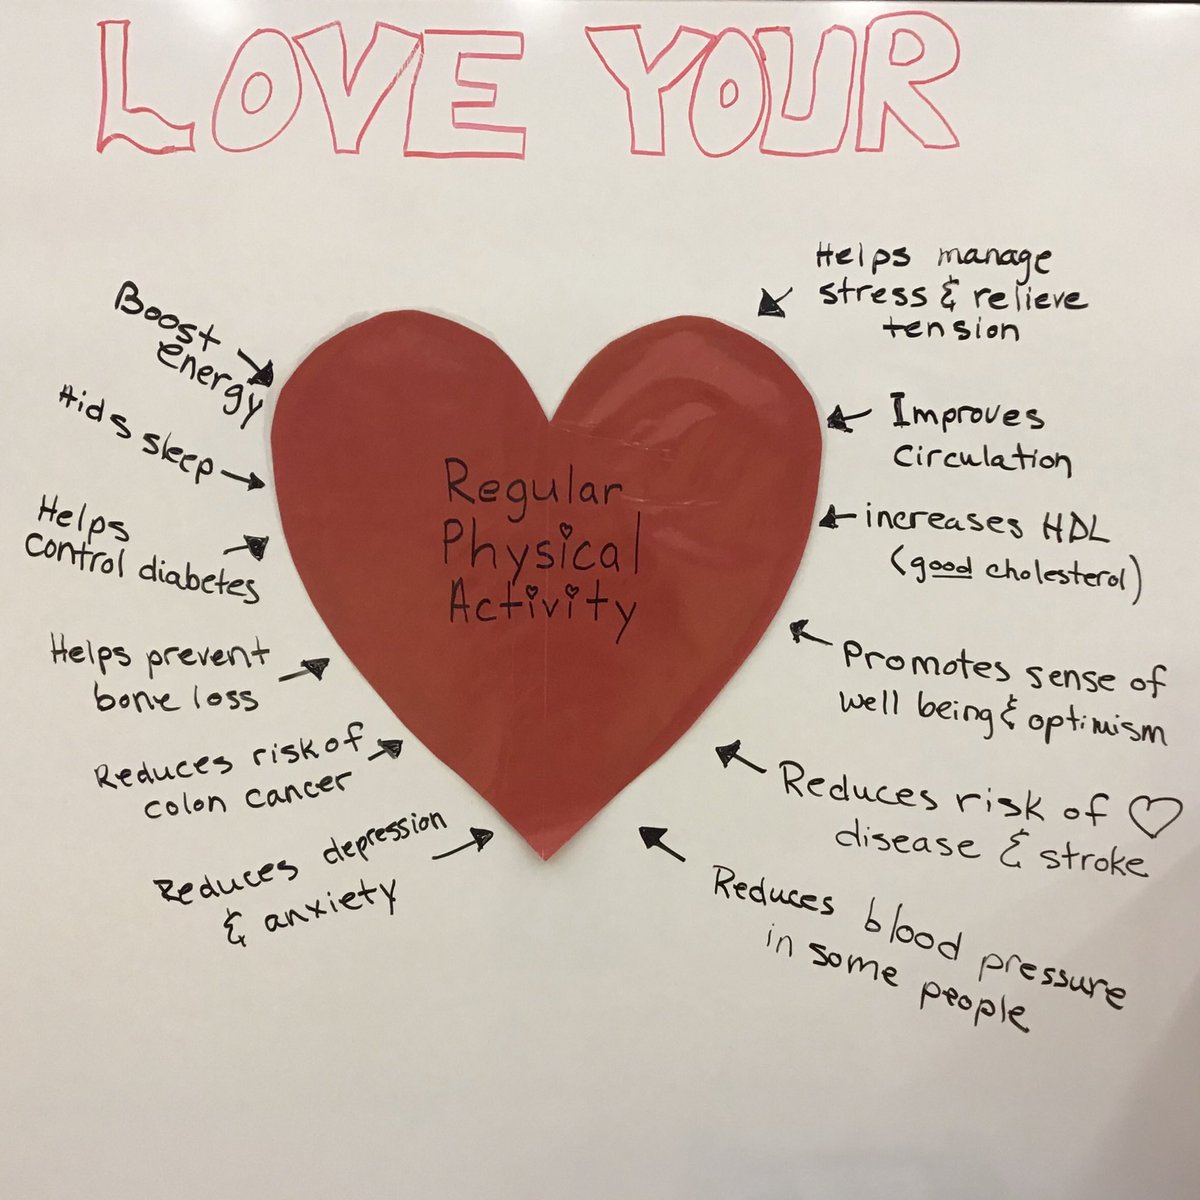 LOVE YOUR
Regular
Physical
Activity
Boost
energy
Aids sleep
Helps
control diabetes
Helps prevent
bone loss
Reduces risk of
colon cancer
Reduces depression
& anxiety
Helps manage
stress & relieve
tension
Improves
circulation
increases HDL
(good cholesterol)
Promotes sense of
well being & optimism
Reduces risk of ♡
disease & stroke
Reduces blood pressure
in some people